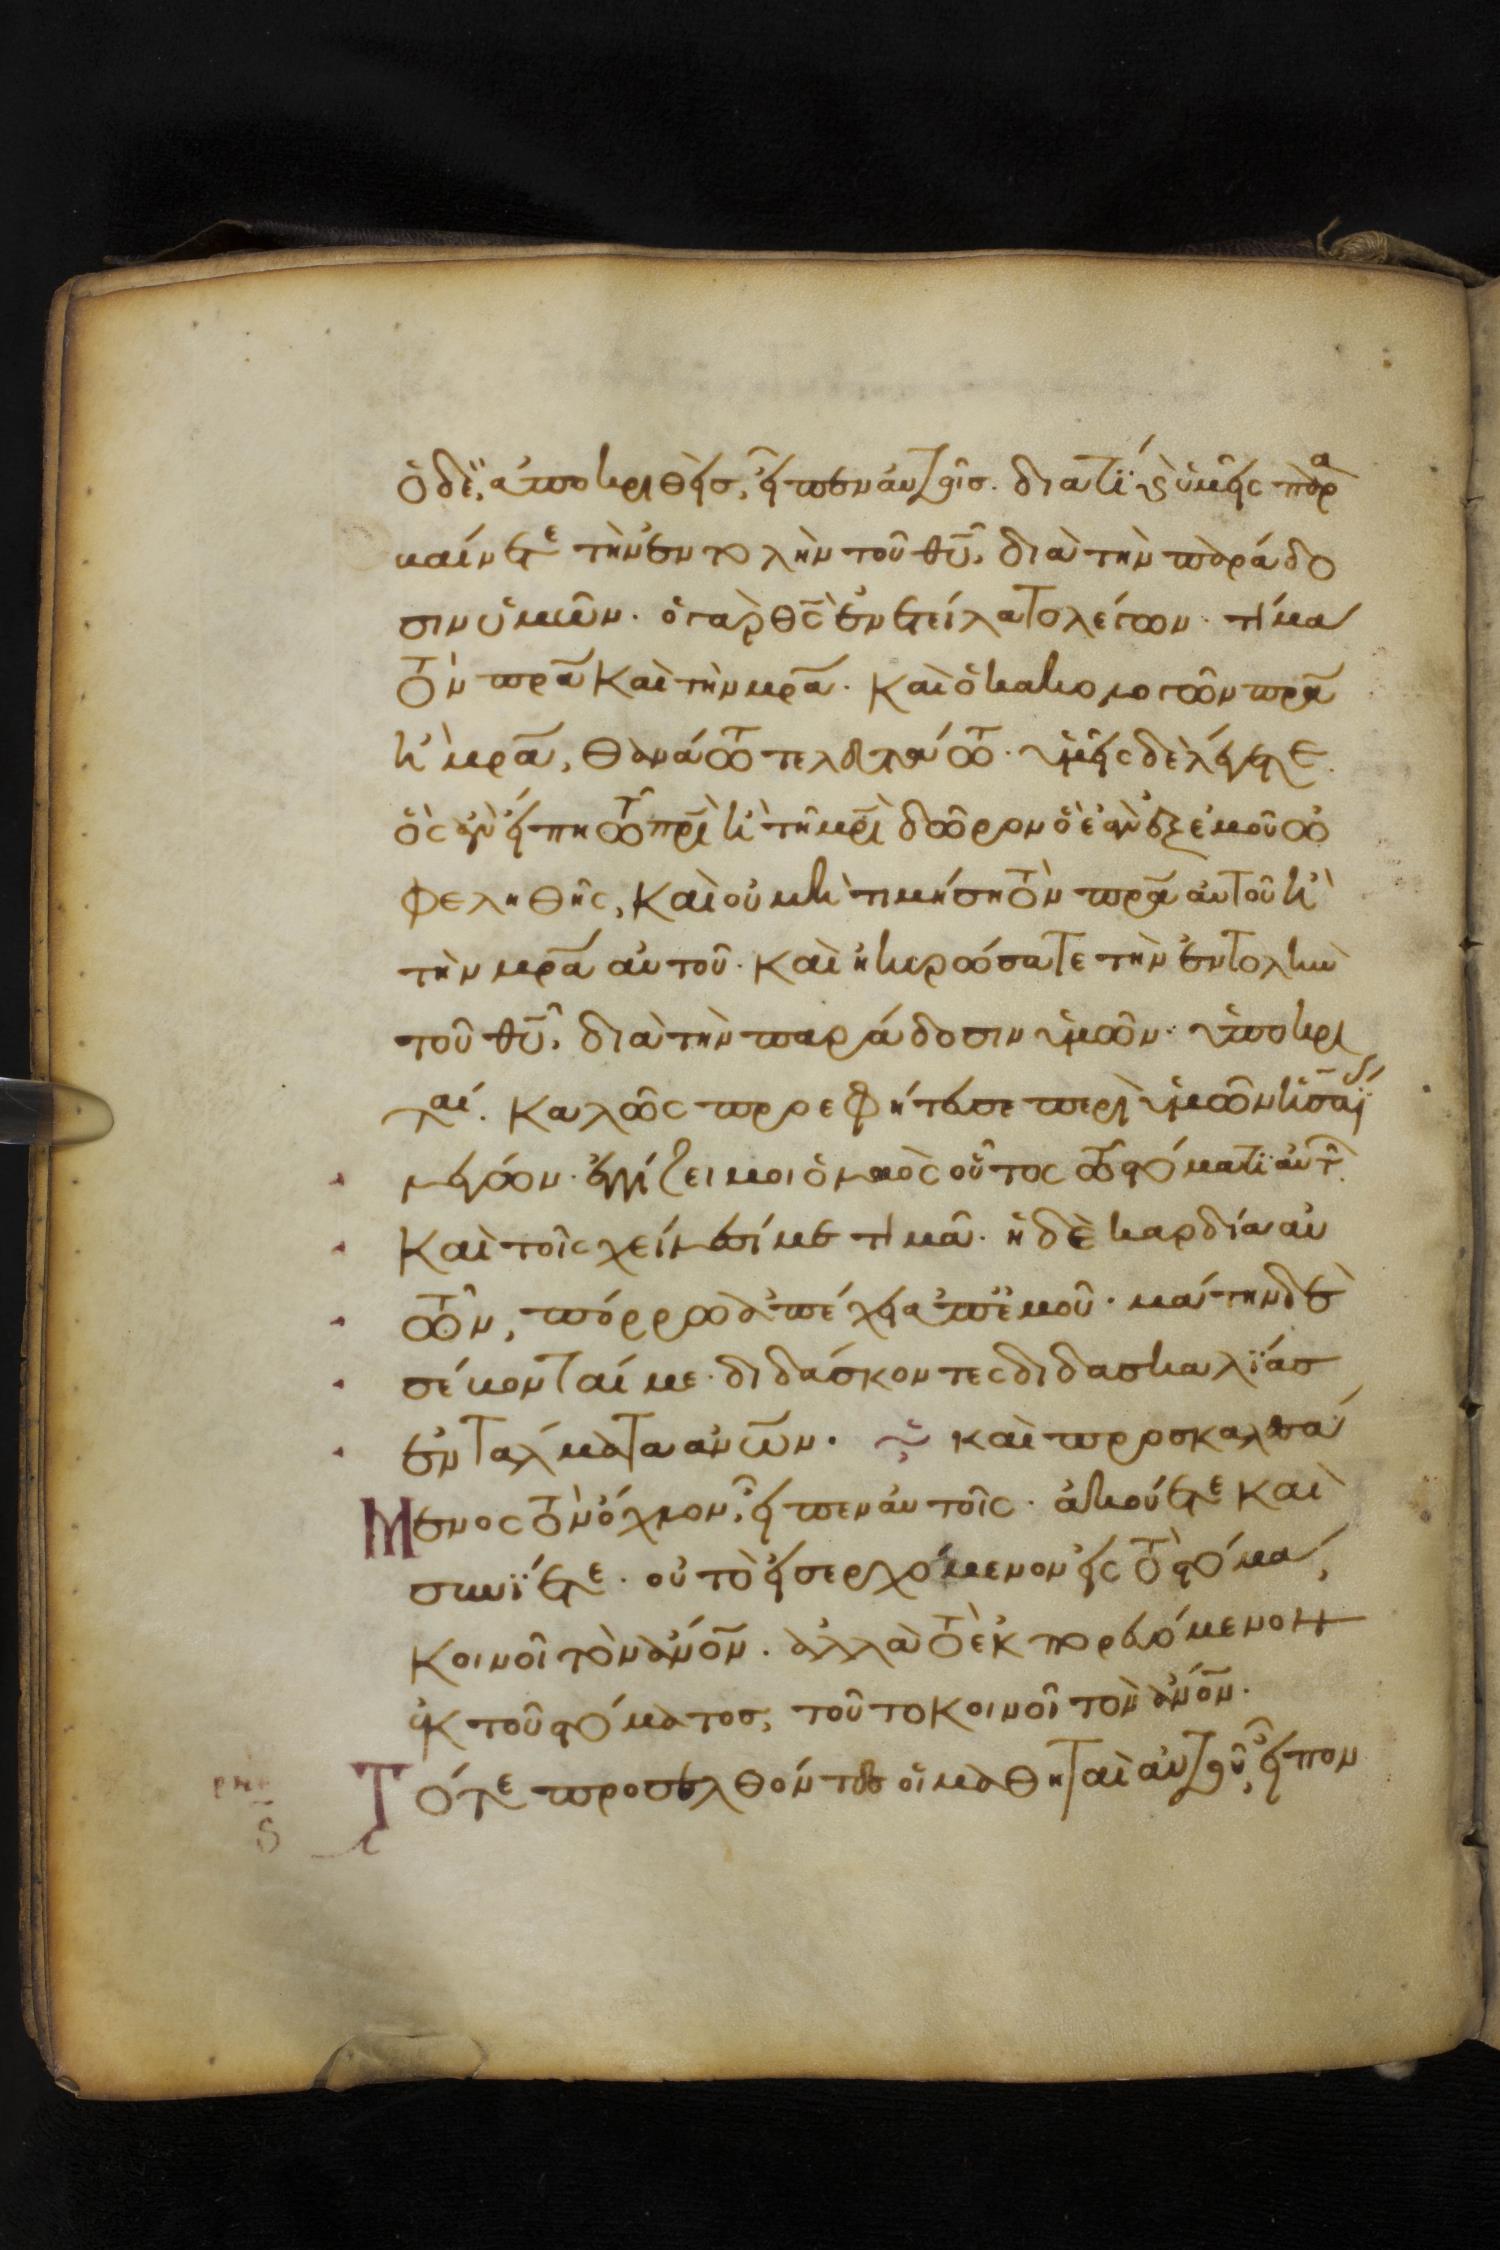 ὁ δὲ ἀποκριθεὶσ, εἶπεν αὐτοῖσ. διατί ϗ ὑμεῖς παρα
βαίνετε τὴν ἐντολὴν τοῦ θ̅υ̅, διὰ τὴν παράδο
σιν ὑμῶν. ὁ γὰρ θ̅ς̅ ἐνετείλατο λέγων. τίμα
τὸν π̅ρ̅α̅ καὶ τὴν μ̅ρ̅α̅. καὶ ὁ κακολογῶν π̅ρ̅α̅
ἢ μ̅ρ̅α̅, θανάτω τελευτάτω. ὑμεῖς δὲ λέγετε.
ὃς ἐὰν εἴπη τῶ π̅ρ̅ι̅ ἢ τῆ μ̅ρ̅ι̅ δῶρον ὃ ἐὰν ἐξ ἐμοῦ ὠ
φεληθῆς, καὶ οὐ μὴ τιμήση τὸν π̅ρ̅α̅ αὐτοῦ ἢ
τὴν μ̅ρ̅α̅ αὐτοῦ. καὶ ἠκυρώσατε τὴν ἐντολὴν
τοῦ θ̅υ̅, διὰ τὴν παράδοσιν ὑμῶν. ὑποκρι
ταί. καλῶς προεφήτευσε περὶ ὑμῶν ἡσαΐ
λέγων. ἐγγίζει μοι ὁ λαὸς οὗτος τῶ στόματι αὐτ
καὶ τοῖς χείλεσί με τιμᾶ. ἡ δὲ καρδία αὐ
τῶν, πόρρω ἀπέχει ἀπ' ἐμοῦ. μάτην δὲ
σέβονταί με. διδάσκοντες διδασκαλίασ
ἐντάλματα α̅ν̅ω̅ν̅. καὶ προσκαλεσά
μενος τὸν ὄχλον, εἶπεν αὐτοῖς. ἀκούετε καὶ
συνίετε. οὐ τὸ εἰσερχόμενον εἰς τὸ στόμα,
κοινοῖ τὸν α̅ν̅ο̅ν̅. ἀλλὰ τὸ ἐκπορευόμενον
ἐκ τοῦ στόματος, τοῦτο κοινοῖ τὸν α̅ν̅ο̅ν̅.
Τότε προσελθόντες οἱ μαθηταὶ αὐτοῦ, εἶπον